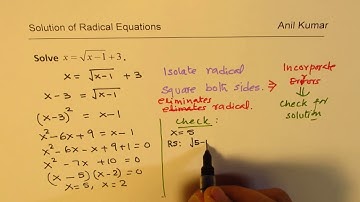 Solution of Radical Equations
Anil Kumar
Solve x = √x-1 + 3.
x = √x-1 + 3
x - 3 = √x-1
(x-3)² = x-1
x² - 6x + 9 = x - 1
x² - 6x - x + 9 + 1 = 0
x² - 7x + 10 = 0
(x - 5)(x - 2) = 0
x = 5, x = 2
Isolate radical
Square both sides. ⇒
eliminates
elimates radical.
Incorporate
Errors
⇓
Check for
solution
Check:
x = 5
RS: √5-1